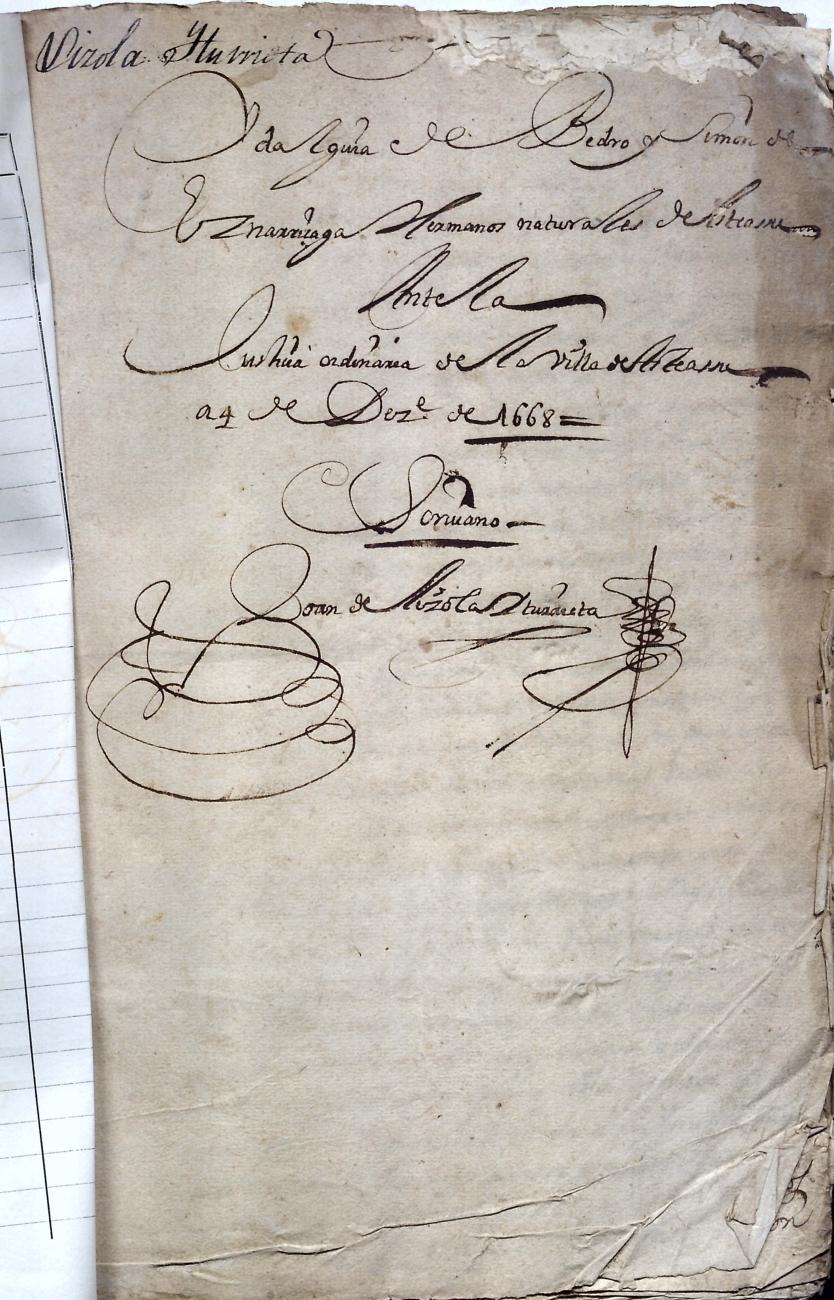 Vizola Yturrieta
Ydalguia de Pedro y Simon de
Eznarriçaga Hermanos naturales de Asteasu
Ante la
Justiçia ordinaria de la villa de Asteasu
a 4 de Dez.e de 1668=
Scriuano
Joan de Vizola Yturrieta